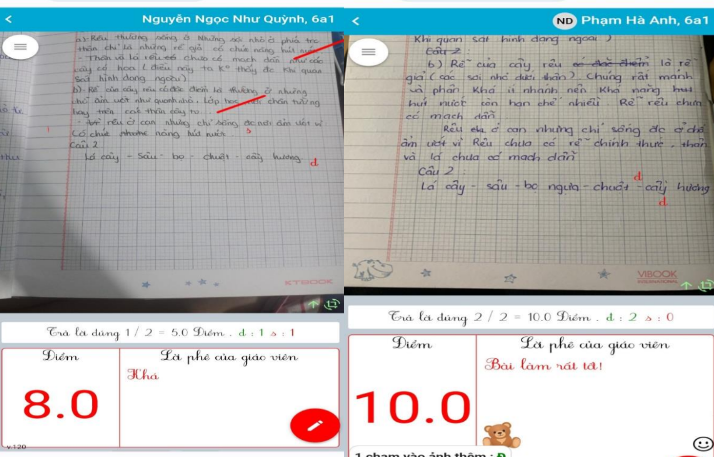 Nguyễn Ngọc Như Quỳnh, 6a1
a) Rêu thường sống ở những nơi
thân chỉ là những rễ giả có chức năng hút nước
- Thân và lá rêu chưa có mạch dẫn như các
cây có hoa ( điều này ta K° thấy đc khi quan
sát hình dạng ngoài)
b) Rễ của cây rêu có đặc điểm là thường ở những
chỗ ẩm ướt như quanh nhà, lớp chân tường
hay trên thân cây to...
- rêu ở cạn nhưng chỉ sống đc nơi ẩm ướt vì
có chức năng hút nước
1
s
Câu 2
Lá cây - Sâu - bọ - chuột - cầy hương
đ
KTBOOK
Trả lời đúng 1 / 2 = 5.0 Điểm . đ : 1 s : 1
Điểm
Lời phê của giáo viên
Khá
8.0
v.120
ND Phạm Hà Anh, 6a1
Khi quan sát hình dạng ngoài )
Câu 2
b) Rễ của cây rêu là rễ
giả ( các sợi nhỏ dưới thân ). Chúng rất mảnh
và phân khá ít nhánh nên khả năng hút
hút nước còn hạn chế nhiều Rễ rêu chưa
có mạch dẫn
Rêu ở cạn nhưng chỉ sống đc ở chỗ
ẩm ướt vì Rêu chưa có rễ chính thức, thân
và lá chưa có mạch dẫn
Câu 2 :
đ
Lá cây - sâu - bọ ngựa - chuột - cầy hương
đ
VIBOOK
Trả lời đúng 2 / 2 = 10.0 Điểm . đ : 2 s : 0
Điểm
Lời phê của giáo viên
Bài làm rất tốt!
10.0
1 chạm vào ảnh thêm : Đ